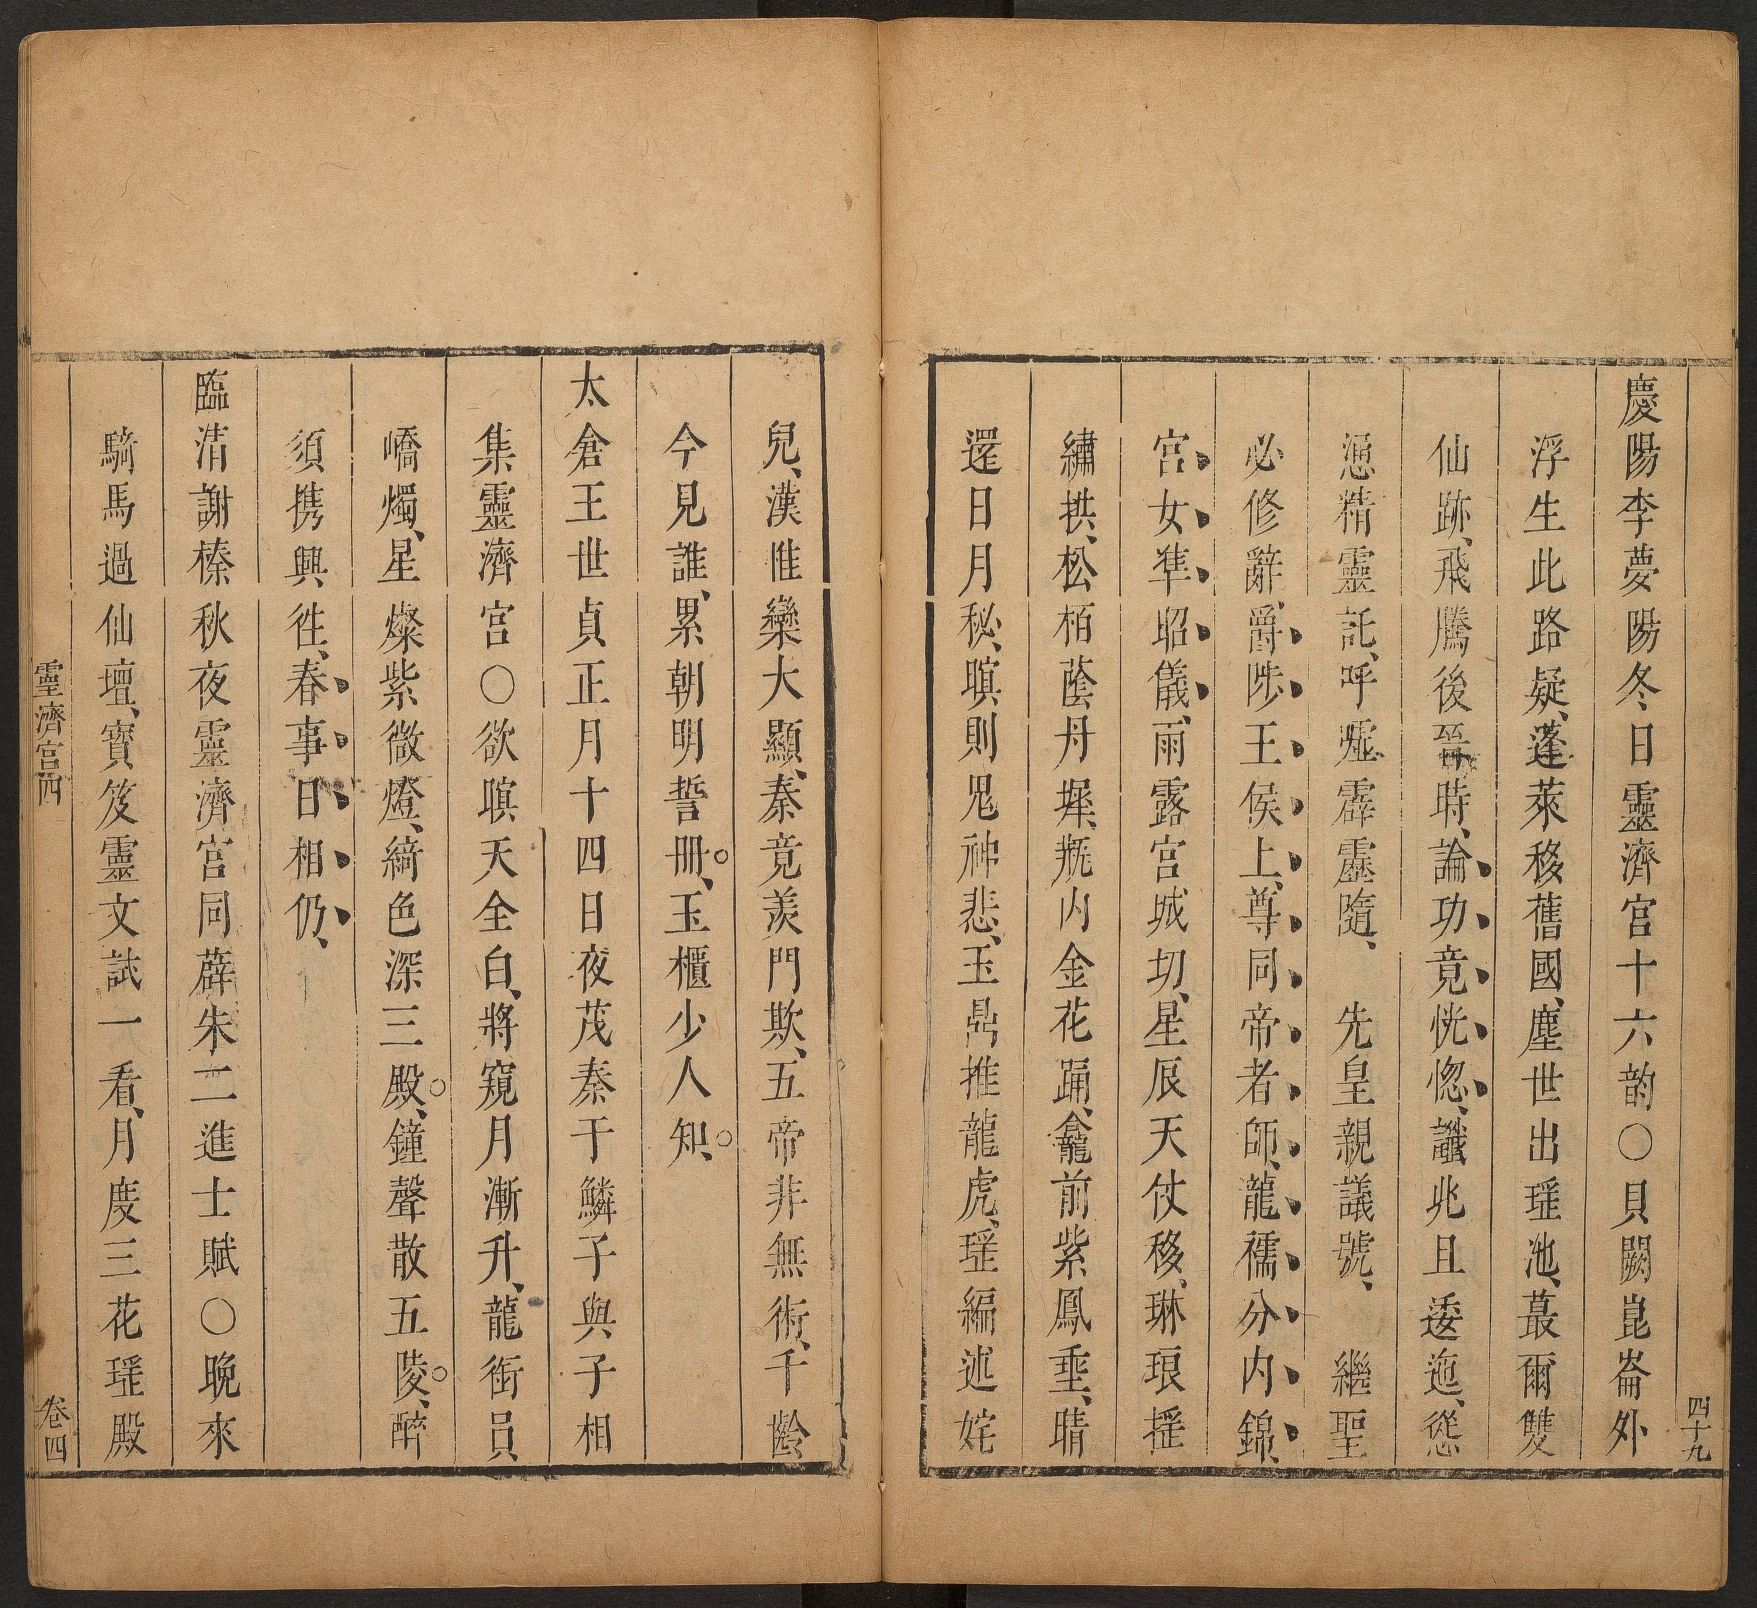 四十九
慶陽李夢陽冬日靈濟宮十六韵○貝闕崑崙外
浮生此路疑、蓬萊移舊國、塵世出瑶池、蕞爾雙
仙跡、飛騰後晉時、論功竟恍惚、讖兆且逶迤、慫
慂精靈託、呼噓霹靂隨、先皇親議號、繼聖
必修辭、爵陟王侯上、尊同帝者師、龍襦分内錦、
宮女準昭儀、雨露宮城切、星辰天仗移、琳琅摇
繡拱、松栢蔭丹墀、瓶内金花踊、龕前紫鳳垂、晴
還日月秘、暝則鬼神悲、玉鼎推龍虎、瑶編述姹
兒、漢惟欒大顯、秦竟羡門欺、五帝非無術、千齡
今見誰、累朝明誓册、玉櫃少人知、
太倉王世貞正月十四日夜茂秦于鱗子與子相
集靈濟宮○欲暝天全白、將窺月漸升、龍銜員
嶠燭、星燦紫微燈、綺色深三殿、鐘聲散五陵、醉
須携興徃、春事日相仍、
臨清謝榛秋夜靈濟宮同薜朱二進士賦○晚來
騎馬過仙壇、寶笈靈文試一看、月度三花瑶殿
靈濟宮四
卷四